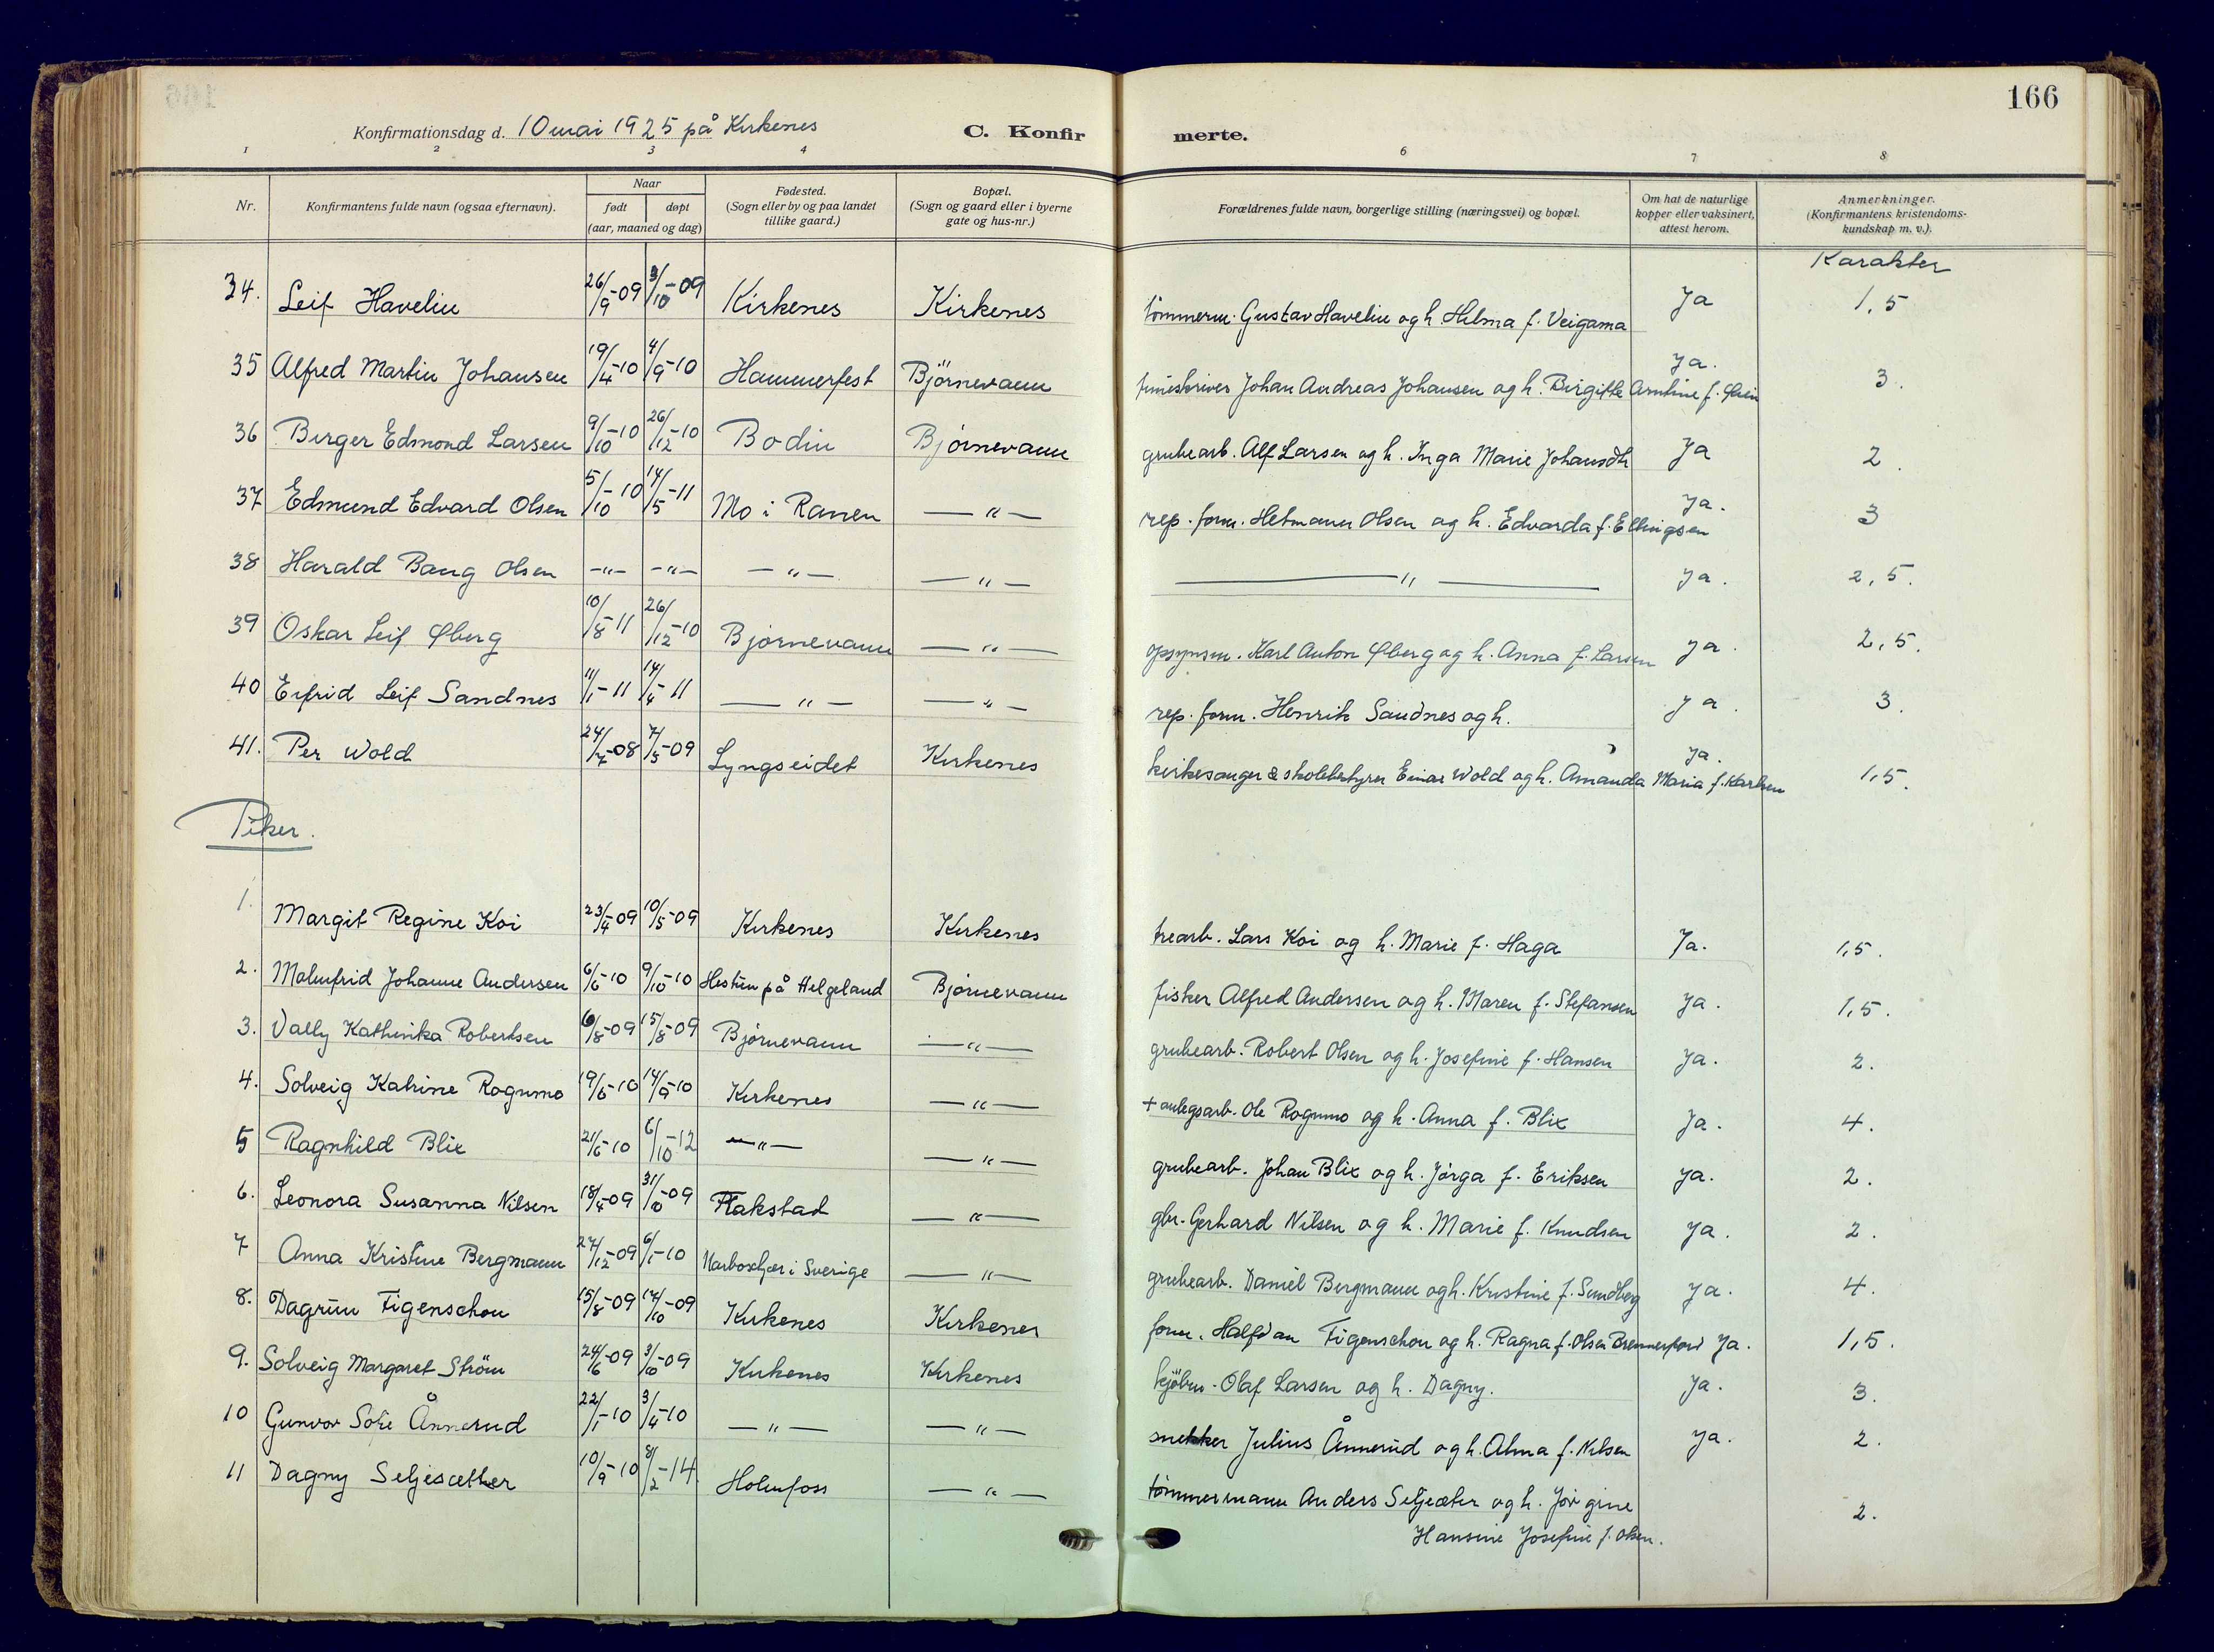 166
Konfirmationsdag d. 10 mai 1925 på Kirkenes C. Konfir merte.
1 2 3 4 6 7 8
Nr. Konfirmantens fulde navn (ogsaa efternavn). Naar født døpt (aar, maaned og dag) Fødested. (Sogn eller by og paa landet tillike gaard.) Bopæl. (Sogn og gaard eller i byerne gate og hus-nr.) Forældrenes fulde navn, borgerlige stilling (næringsvei) og bopæl. Om hat de naturlige kopper eller vaksinert, attest herom. Anmerkninger. (Konfirmantens kristendoms- kundskap m. v.).
Karakter
34. Leif Havelin 26/9-09 3/10-09 Kirkenes Kirkenes tömmerm. Gustav Havelin og h. Hilma f. Veigama Ja 1,5
35 Alfred Martin Johansen 19/4-10 4/9-10 Hammerfest Björnevann timeskriver Johan Andreas Johansen og h. Birgitte Arntine f. Ja. 3.
36 Birger Edmond Larsen 9/10-10 26/12-10 Bodin Bjørnevann grubearb. Alf Larsen og h. Inga Marie Johansdtr Ja 2.
37 Edmund Edvard Olsen 5/10-10 14/5-11 Mo i Ranen —"— rep. form. Hetmann Olsen og h. Edvarda f. Ellingsen Ja. 3
38 Harald Bang Olsen -"- -"- —"— —"— —"— Ja. 2,5.
39 Oskar Leif Øberg 10/8-11 26/12-10 Bjørnevann —"— opsynsm. Karl Anton Øberg og h. Anna f. Larsen Ja. 2,5.
40 Eifrid Leif Sandnes 11/1-11 14/4-11 —"— —"— rep. form. Henrik Sandnes og h. Ja. 3.
41. Per Wold 24/7-08 7/3-09 Lyngseidet Kirkenes kirkesanger & skolebestyrer Einar Wold og h. Amanda Maria f. Karlsen Ja. 1,5.
Piker.
1. Margit Regine Koi 23/4-09 10/5-09 Kirkenes Kirkenes trearb. Lars Koi og h. Marie f. Haga Ja. 1,5.
2. Malmfrid Johanne Andersen 6/6-10 9/10-10 på Helgeland Bjørnevann fisker Alfred Andersen og h. Maren f. Stefansen Ja. 1,5.
3. Vally Kathinka Robertsen 6/8-09 15/8-09 Bjørnevann —"— grubearb. Robert Olsen og h. Josefine f. Hansen Ja. 2.
4. Solveig Katrine Rognmo 19/6-10 14/9-10 Kirkenes —"— + anlegsarb. Ole Rognmo og h. Anna f. Blix Ja. 4.
5 Ragnhild Blix 21/6-10 6/10-12 —"— —"— grubearb. Johan Blix og h. Jörga f. Eriksen Ja. 2.
6. Leonora Susanna Nilsen 18/4-09 31/10-09 Flakstad —"— gbr. Gerhard Nilsen og h. Marie f. Knudsen Ja. 2.
7 Anna Kristine Bergmann 27/12-09 6/1-10 i Sverige —"— grubearb. Daniel Bergmann og h. Kristine f. Sundberg Ja. 4.
8. Dagrun Figenschou 15/8-09 17/10-09 Kirkenes Kirkenes form. Halfdan Figenschou og h. Ragna f. Olsen Ja. 1,5.
9. Solveig Margaret Ström 24/6-09 3/10-09 Kirkenes Kirkenes kjöbm. Olaf Larsen og h. Dagny. Ja. 3.
10 Gunvor Sofie Ånnerud 22/1-10 3/4-10 —"— —"— snekker Julius Ånnerud og h. Alma f. Nilsen Ja. 2.
11 Dagny Seljesæther 10/9-10 8/2-14. Holmfoss —"— tömmermann Anders Seljeæter og h. Jörgine 2.
Hansine Josefine f. Olsen.